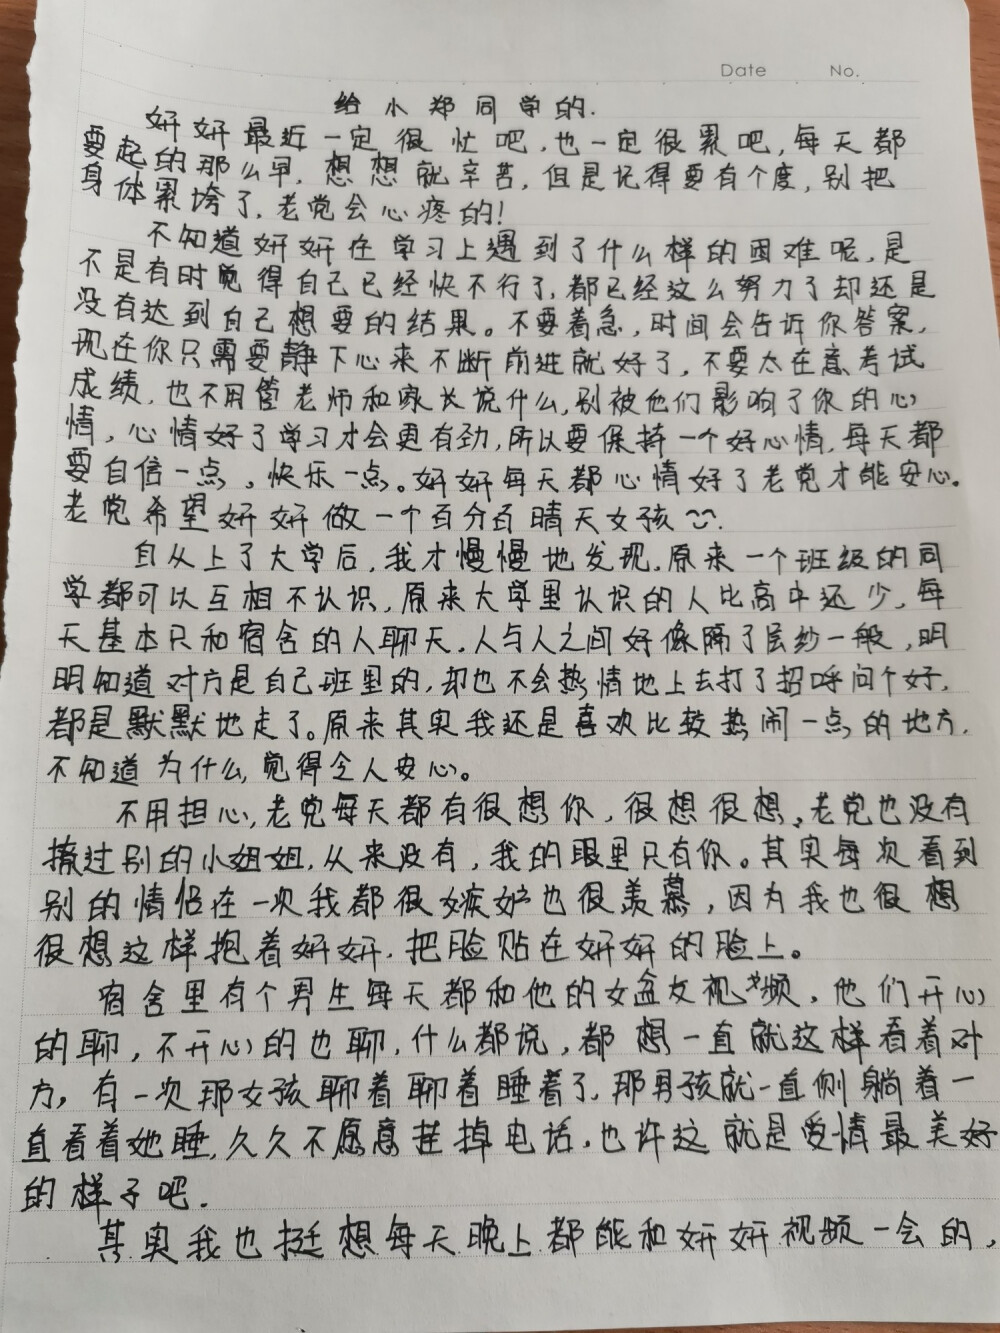 Date No.
给小郑同学的.
妍妍最近一定很忙吧,也一定很累吧,每天都
要起的那么早,想想就辛苦,但是记得要有个度,别把
身体累垮了,老党会心疼的!
不知道妍妍在学习上遇到了什么样的困难呢,是
不是有时觉得自己已经快不行了,都已经这么努力了却还是
没有达到自己想要的结果。不要着急,时间会告诉你答案,
现在你只需要静下心来不断前进就好了,不要太在意考试
成绩,也不用管老师和家长说什么,别被他们影响了你的心
情,心情好了学习才会更有劲,所以要保持一个好心情,每天都
要自信一点、快乐一点。妍妍每天都心情好了老党才能安心。
老党希望妍妍做一个百分百晴天女孩
自从上了大学后,我才慢慢地发现,原来一个班级的同
学都可以互相不认识,原来大学里认识的人比高中还少,每
天基本只和宿舍的人聊天,人与人之间好像隔了层纱一般,明
明知道对方是自己班里的,却也不会热情地上去打了招呼问个好,
都是默默地走了。原来其实我还是喜欢比较热闹一点的地方,
不知道为什么,觉得令人安心。
不用担心,老党每天都有很想你,很想很想,老党也没有
撩过别的小姐姐,从来没有,我的眼里只有你。其实每次看到
别的情侣在一次我都很嫉妒也很羡慕,因为我也很想
很想这样抱着妍妍,把脸贴在妍妍的脸上。
宿舍里有个男生每天都和他的女盆友视频,他们开心
的聊,不开心的也聊,什么都说,都想一直就这样看着对
方,有一次那女孩聊着聊着睡着了,那男孩就一直侧躺着一
直看着她睡,久久不愿意挂掉电话,也许这就是爱情最美好
的样子吧.
其实我也挺想每天晚上都能和妍妍视频一会的,